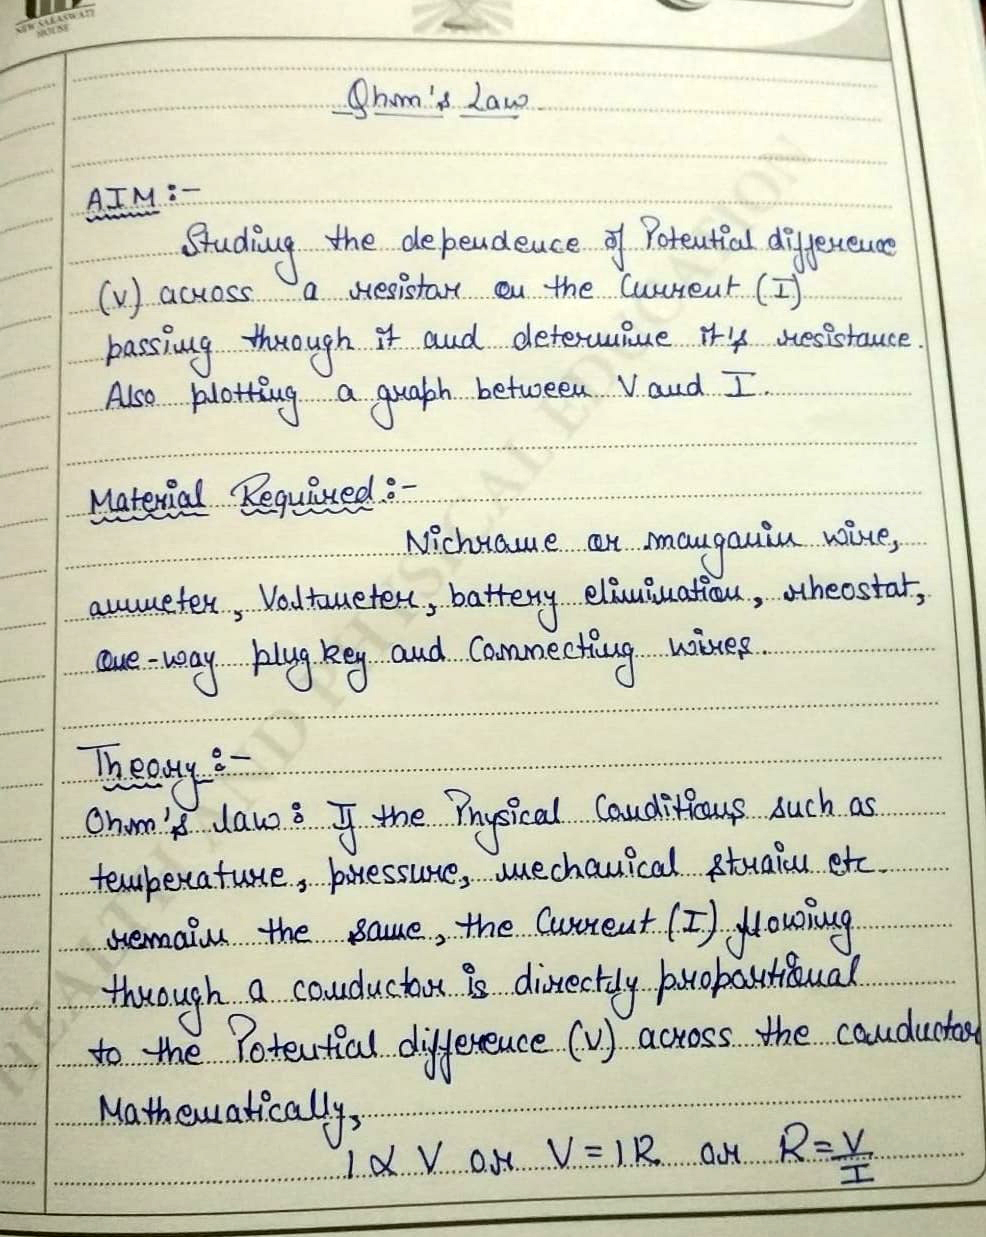 NEW SARASWATI
HOUSE
Ohm's Law
AIM :-
Studing the dependence of Potential difference
(V) across a resistor on the Current (I)
passing through it and determine it's resistance.
Also plotting a graph between V and I.
Material Required :-
Nichrome or manganin wire,
ammeter, Voltmeter, battery elimination, rheostat,
one-way plug key and Connecting wires.
Theory :-
Ohm's law : If the Physical Conditions such as
temperature, pressure, mechanical strain etc.
remain the same, the Current (I) flowing
through a conductor is directly proportional
to the Potential difference (V) across the conductor
Mathematically,
I α V or V = IR or R = V/I
HEALTH AND PHYSICAL EDUCATION